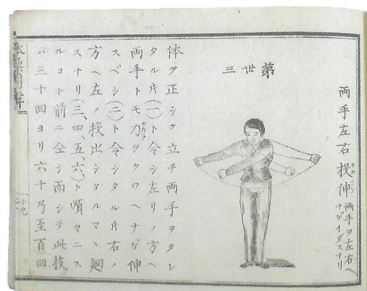 両手左右投伸
両手ヲ左右ヘ
ナゲイダスナリ
第丗三
体ヲ正シク立チ両手ヲタレ
タル片(一)ト令シ左リノ方ヘ
両手トモ力ヲクワヘナゲ伸
スベシ(二)ト令シタル片右ノ
方ヘ左ノ投出シタルマヽ廻
スナリ(三、四、五、六)ト順々ニス
ルコト前ニ仝シ而シテ此技
ハ三十回ヨリ六十乃至百回